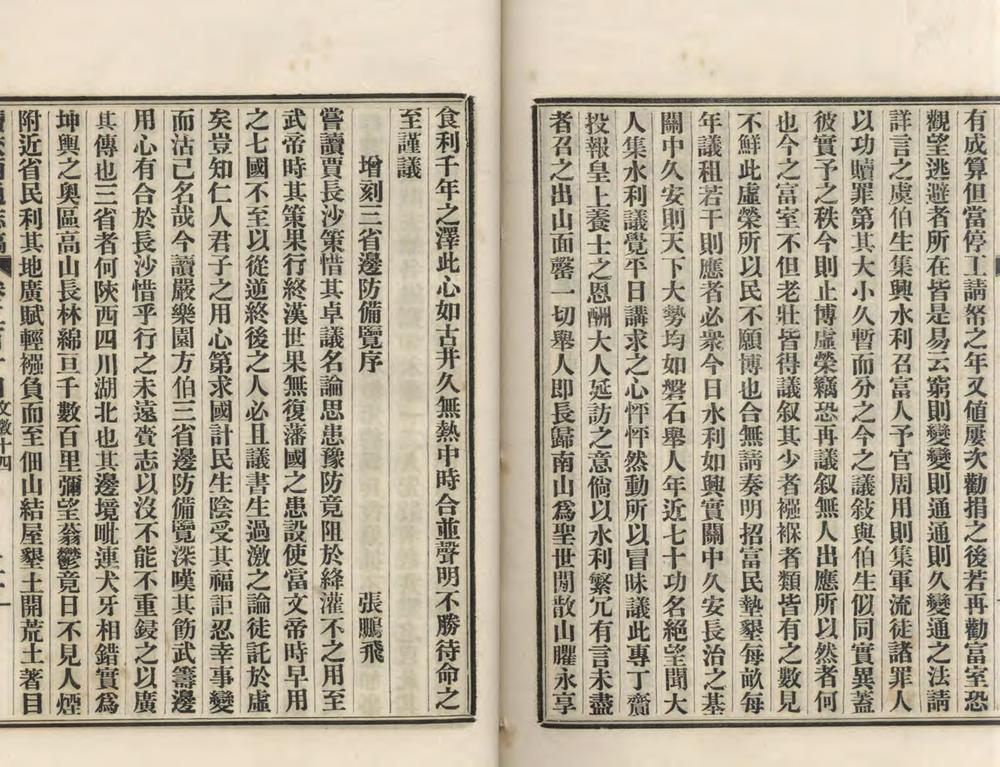 有成算但當停工請帑之年又値屢次勸捐之後若再勸富室恐
觀望逃避者所在皆是易云窮則變變則通通則久變通之法請
詳言之虞伯生集興水利召富人予官周用則集軍流徒諸罪人
以功贖罪第其大小久暫而分之今之議敍與伯生似同實異蓋
彼實予之秩今則止博虛榮竊恐再議叙無人出應所以然者何
也今之富室不但老壯皆得議叙其少者襁褓者類皆有之數見
不鮮此虛榮所以民不願博也合無請奏明招富民墊墾每畝每
年議租若干則應者必衆今日水利如興實關中久安長治之基
關中久安則天下大勢均如磐石舉人年近七十功名絕望聞大
人集水利議覺平日講求之心怦怦然動所以冒昧議此專丁齎
投報皇上養士之恩酬大人延訪之意倘以水利繁冗有言未盡
者召之出山面罄一切舉人即長歸南山爲聖世閒散山臞永享
食利千年之澤此心如古井久無熱中時合並聲明不勝待命之
至謹議
增刻三省邊防備覽序
張鵬飛
嘗讀賈長沙策惜其卓議名論思患豫防竟阻於絳灌不之用至
武帝時其策果行終漢世果無復藩國之患設使當文帝時早用
之七國不至以從逆終後之人必且議書生過激之論徒託於虛
矣豈知仁人君子之用心第求國計民生陰受其福詎忍幸事變
而沽己名哉今讀嚴樂園方伯三省邊防備覽深嘆其籌武籌邊
用心有合於長沙惜乎行之未遠賫志以沒不能不重鋟之以廣
其傳也三省者何陝西四川湖北也其邊境毗連犬牙相錯實爲
坤輿之奧區高山長林綿亘千數百里彌望蓊鬱竟日不見人煙
附近省民利其地廣賦輕襁負而至佃山結屋墾土開荒土著目
文徵十四